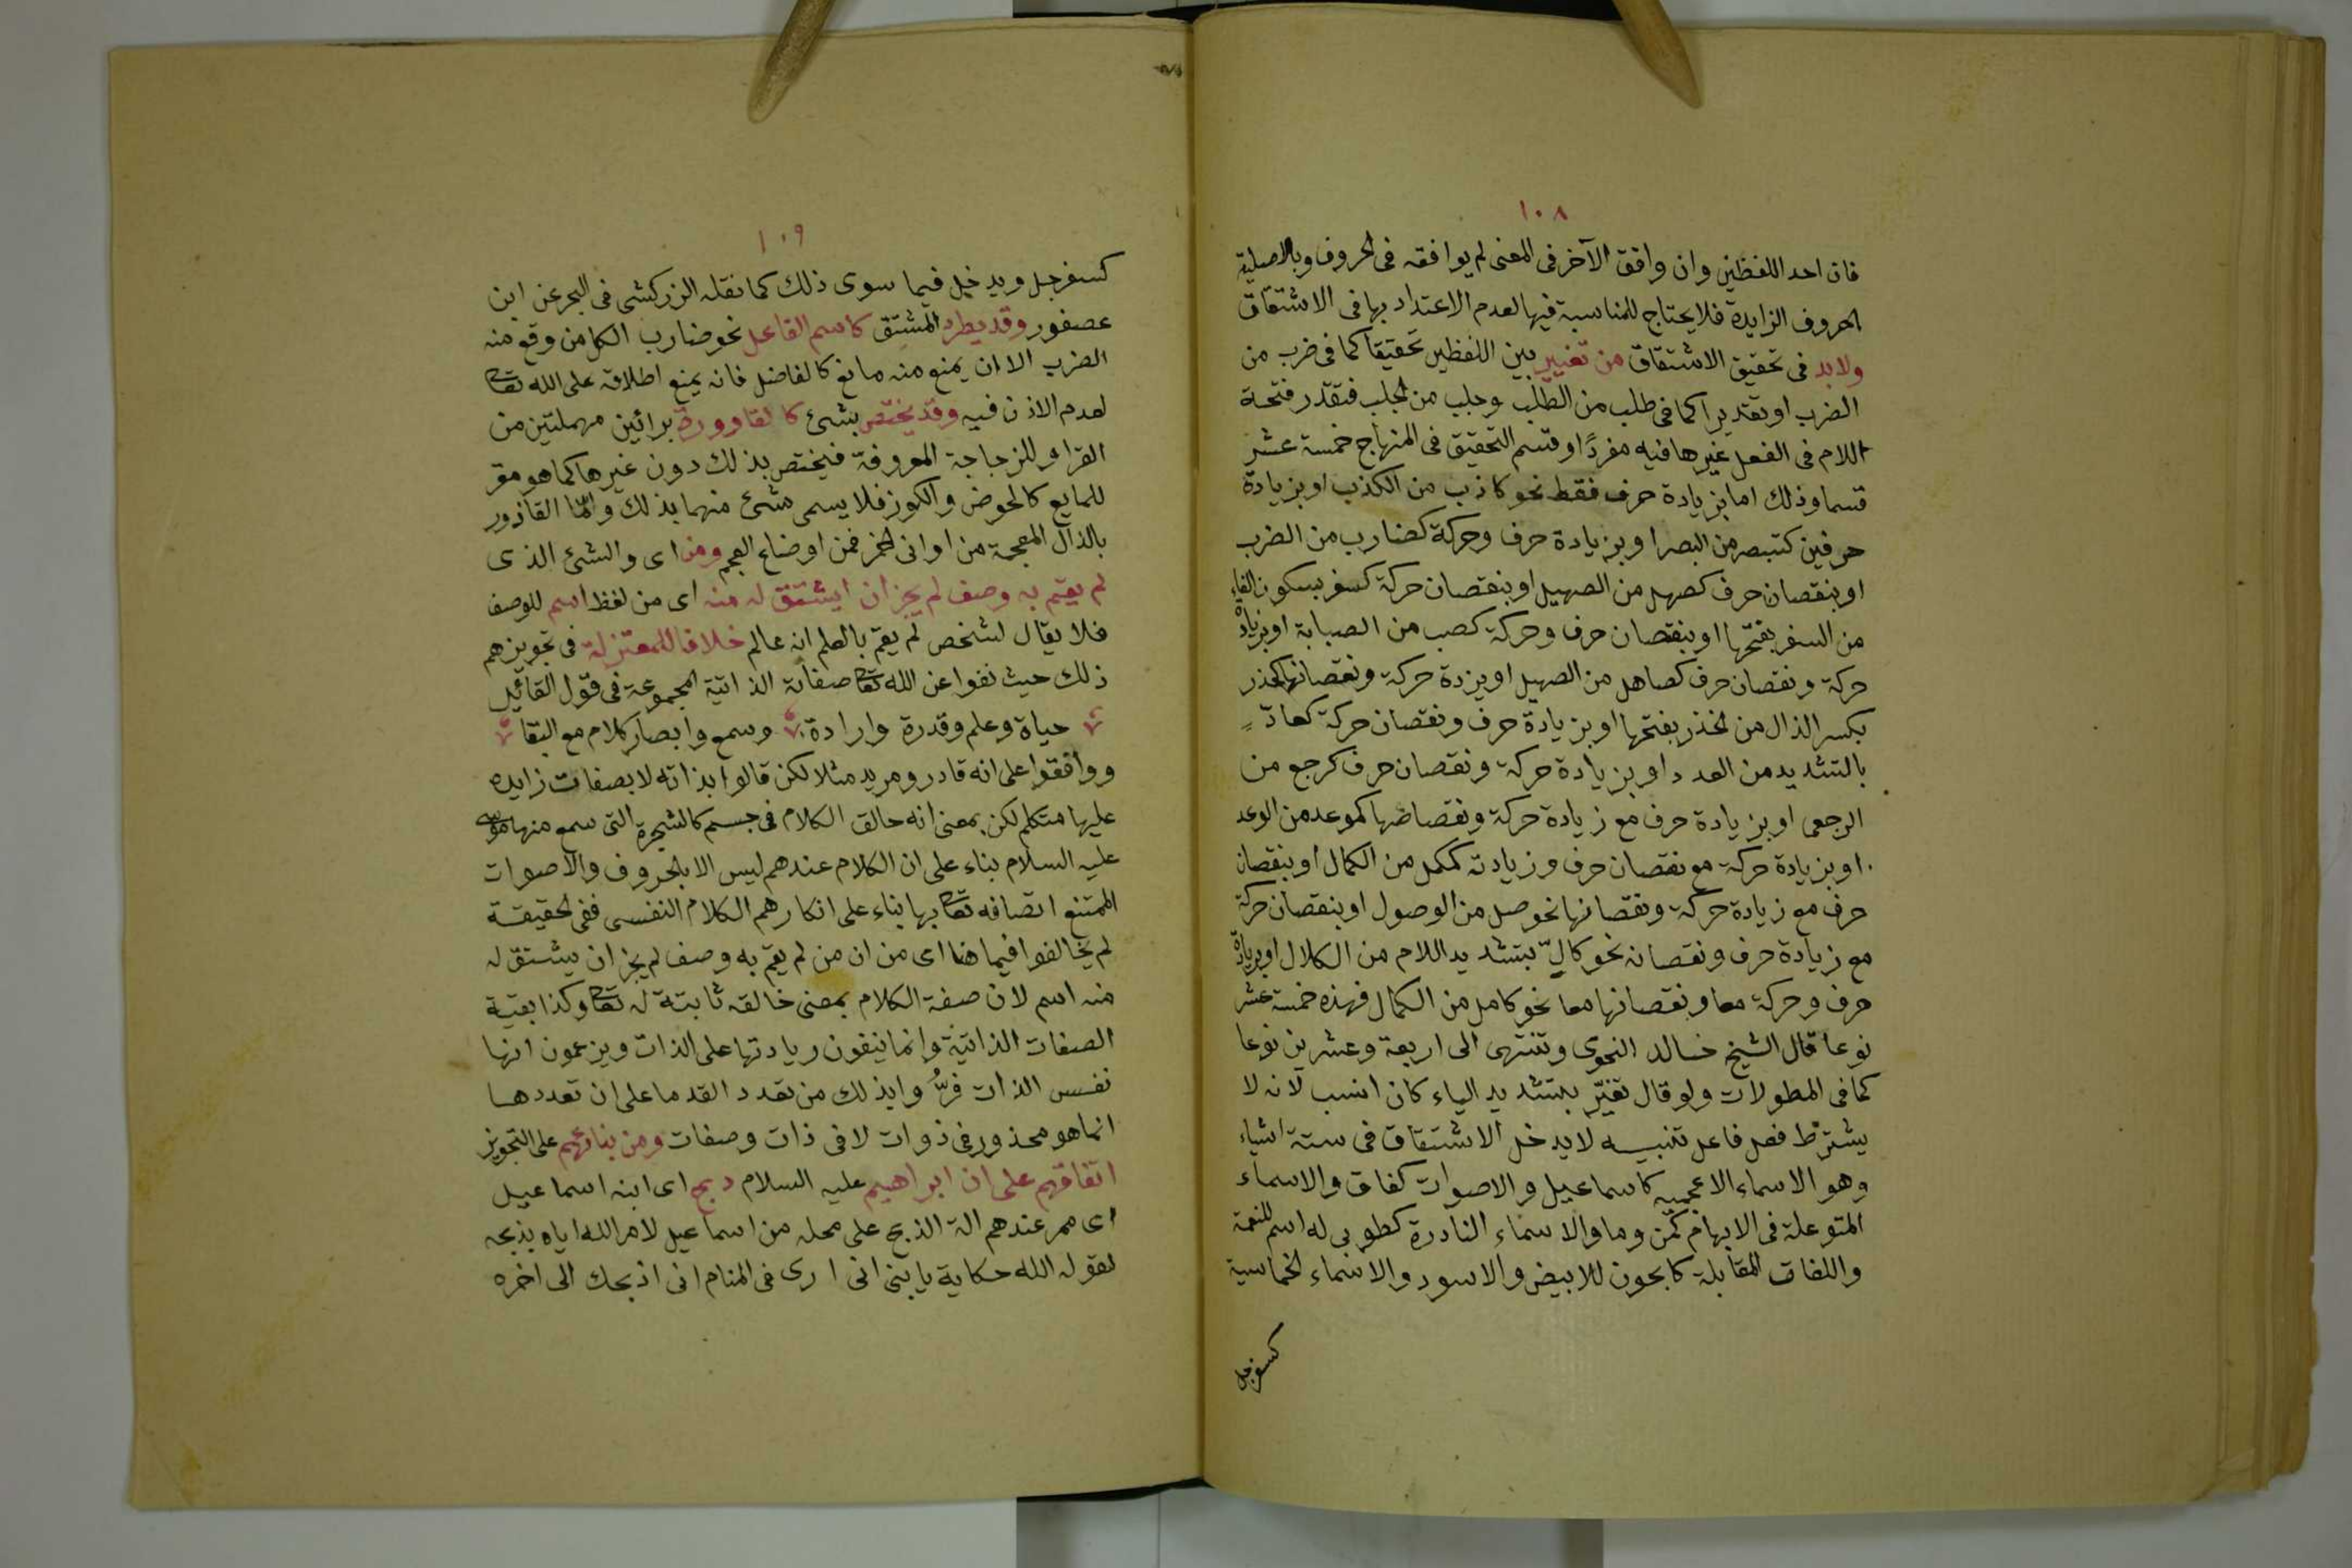 ١٠٨
فان احد اللفظين وان وافق الآخر فى المعنى لم يوافقه فى الحروف وبالاصلية
الحروف الزايدة فلا يحتاج للمناسبة فيها لعدم الاعتداد بها فى الاشتقاق
ولابد فى تحقيق الاشتقاق من تغيير بين اللفظين تحقيقا كما فى ضرب من
الضرب او تقديرا كما فى طلب من الطلب وجلب من الجلب فتقدر فتحة
اللام فى الفعل غيرها فيه مفردًا وقسم التحقيق فى المنهاج خمسة عشر
قسما وذلك اما بزيادة حرف فقط نحو كاذب من الكذب او بزيادة
حرفين كتبصر من البصر او بزيادة حرف وحركة كضارب من الضرب
او بنقصان حرف كصهل من الصهيل او بنقصان حركة كسفر بسكون الفاء
من السفر بفتحها او بنقصان حرف وحركة كصب من الصبابة او بزيادة
حركة ونقصان حرف كصاهل من الصهيل او بزدة حركة ونقصانها كحذر
بكسر الذال من الحذر بفتحها او بزيادة حرف ونقصان حركة كعادّ
بالتشديد من العدد او بزيادة حركة ونقصان حرف كرجع من
الرجعى او بزيادة حرف مع زيادة حركة ونقصانها كموعد من الوعد
او بزيادة حركة مع نقصان حرف وزيادته كمكمل من الكمال او بنقصان
حرف مع زيادة حركة ونقصانها نحو صل من الوصول او بنقصان حركة
مع زيادة حرف ونقصانه نحو كالّ بتشديد اللام من الكلال او بزيادة
حرف وحركة معا وبنقصانها معا نحو كامل من الكمال فهذه خمسة عشر
نوعا قال الشيخ خالد النحوى وتنتهى الى اربعة وعشرين نوعا
كما فى المطولات ولو قال تغيّر بتشديد الياء كان انسب لانه لا
يشترط فعل فاعل تنبيه لا يدخل الاشتقاق فى ستة اشياء
وهو الاسماء الاعجمية كاسماعيل والاصوات كغاق والاسماء
المتوغلة فى الابهام كمن وما والاسماء النادرة كطوبى له اسم للنعمة
واللغات المقابلة كالجون للابيض والاسود والاسماء الخماسية
كسفرجل
١٠٩
كسفرجل ويدخل فيما سوى ذلك كما نقله الزركشى فى البحر عن ابن
عصفور وقد يطرد المشتق كاسم الفاعل نحو ضارب الكل من وقع منه
الضرب الا ان يمنع منه مانع كالفاضل فانه يمنع اطلاقه على الله تعا
لعدم الاذن فيه وقد يختص بشئ كالقاوورة برائين مهملتين من
القرار للزجاجة المعروفة فيختص بذلك دون غيرها كما هو مقر
للمايع كالحوض والكوز فلا يسمى شئ منهما بذلك وامّا القاذور
بالذال المعجمة من اوانى الخمر فمن اوضاع العجم ومن اى والشئ الذى
لم يقم به وصف لم يجز ان ايشتق له منه اى من لفظ اسم للوصف
فلا يقال لشخص لم يقم بالعلم انه عالم خلافا للمعتزلة فى تجويزهم
ذلك حيث نفوا عن الله تعا صفاته الذاتية المجموعة فى قول القائل
حياة وعلم وقدرة وارادة وسمع وابصار كلام مع البقا
ووافقوا على انه قادر ومريد مثلا لكن قالوا بذاته لا بصفات زايده
عليها متكلم لكن بمعنى انه خالق الكلام فى جسم كالشجرة التى سمع منها موسى
عليه السلام بناء على ان الكلام عندهم ليس الا بالحروف والاصوات
الممتنع اتصافه تعا بها بناء على انكارهم الكلام النفسى ففى الحقيقة
لم يخالفوا فيما هنا اى من ان من لم يقم به وصف لم يجز ان يشتق له
منه اسم لان صفة الكلام بمعنى خالقه ثابتة له تعا وكذا بقية
الصفات الذاتية وانما ينفون زيادتها على الذات ويزعمون انها
نفس الذات فرّوا بذلك من تعدد القدما على ان تعددها
انما هو محذور فى ذوات لا فى ذات وصفات ومن بنائهم على التجويز
اتفاقهم على ان ابراهيم عليه السلام ذبح اى ابنه اسماعيل
اى ممر عندهم الة الذبح على محله من اسماعيل لامر الله اياه بذبحه
لقوله الله حكاية يا بنى انى ارى فى المنام انى اذبحك الى اخره